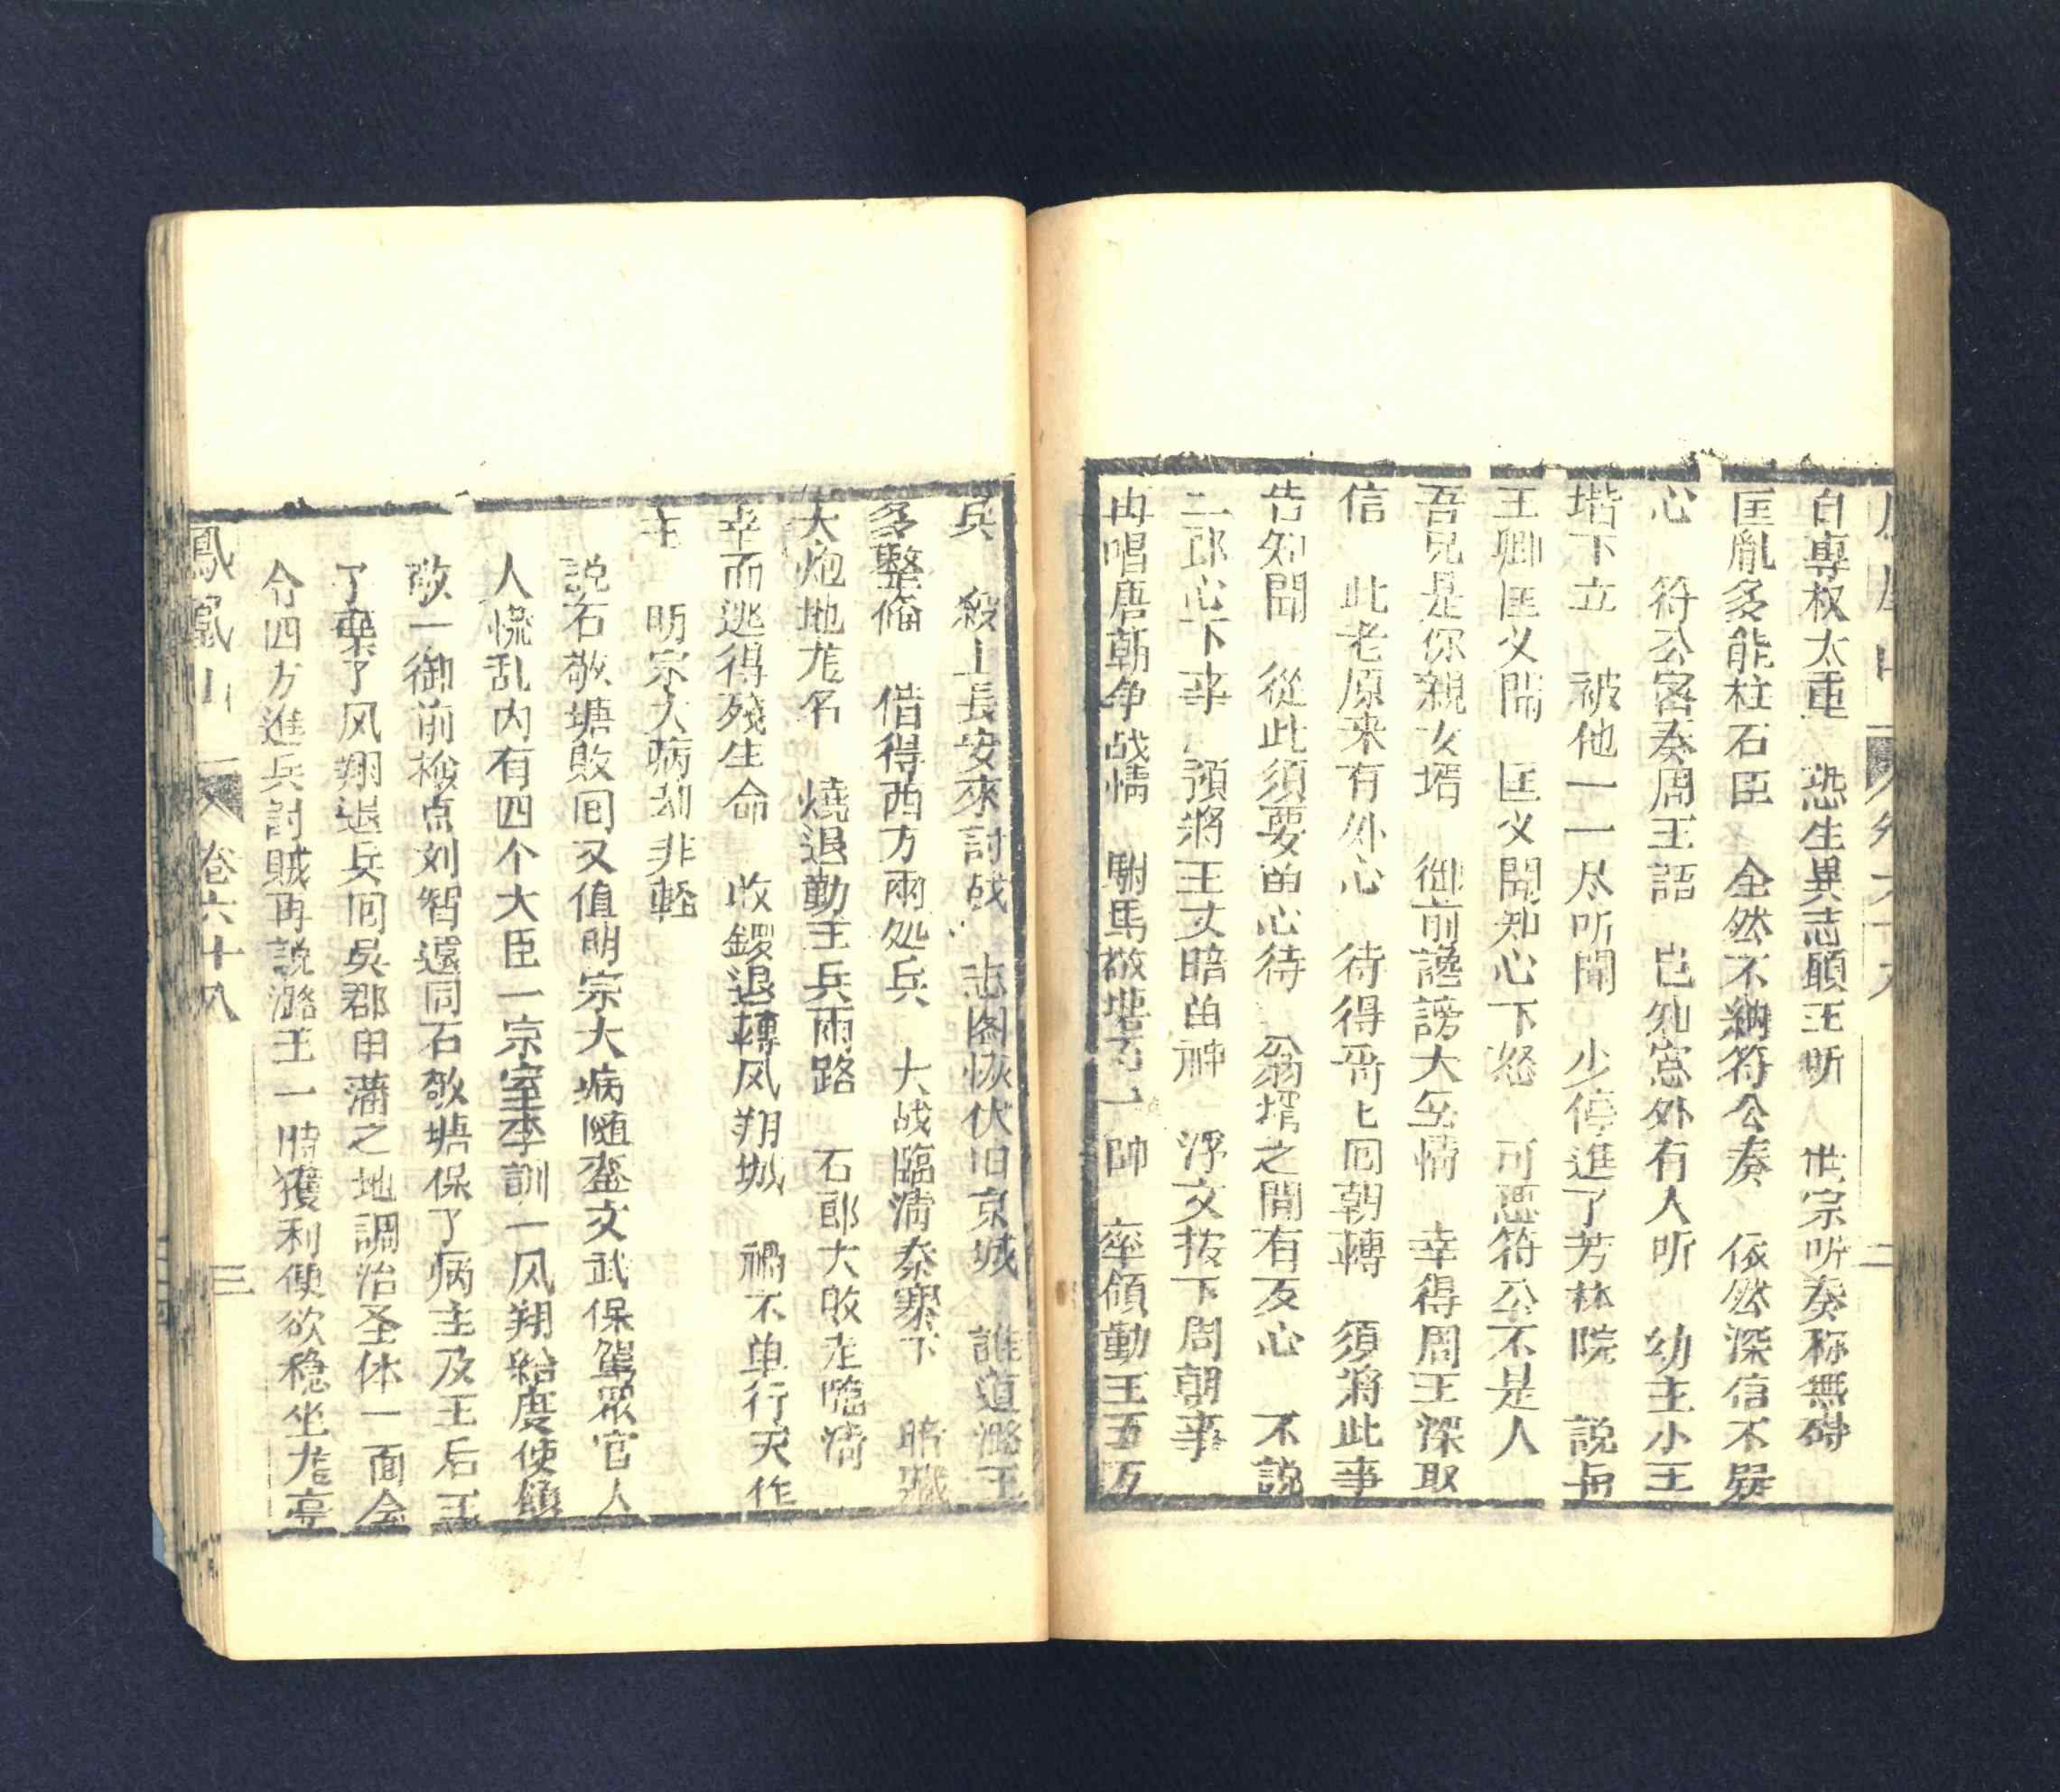 自專权太重　恐生異志願王听　世宗听奏称無碍
匡胤多能柱石臣　全然不納符公奏　依然深信不疑
心　符公密奏周王語　岂知窓外有人听　幼主小王
堦下立　被他一一尽所聞　少停進了芳林院　説与
王卿匡义聞　匡义聞知心下怒　可惡符公不是人
吾兄是你親女壻　御前讒謗大无情　幸得周王深取
信　此老原来有外心　待得哥匕囘朝轉　須將此事
告知聞　從此須要留心待　翁壻之間有反心　不説
二郎心下事　預將王丈暗留神　浮文按下周朝事
再唱唐朝争战情　駙馬敬塘 帥　率領勤王五万
兵　殺上長安來討战　志圖恢伏旧京城　誰道潞王
多整俻　借得西方兩処兵　大战臨清秦寨下　暗藏
大炮地尨名　燒退勤王兵兩路　石郎大敗走臨清
幸而逃得殘生命　收鑼退轉风翔城　禍不单行天作
主　明宗大病却非輕
説石敬塘敗囘又值明宗大病隨壺文武保駕衆官人
人慌乱内有四个大臣一宗室李訓一风翔給度使傾
敬一御前檢点刘智遠同石敬塘保了病主及王后王
了棄了风翔退兵囘吳郡田藩之地調治圣体一面会
令四方進兵討賊再説潞王一時獲利便欲稳坐尨亭
鳳凰山　卷六十八　三